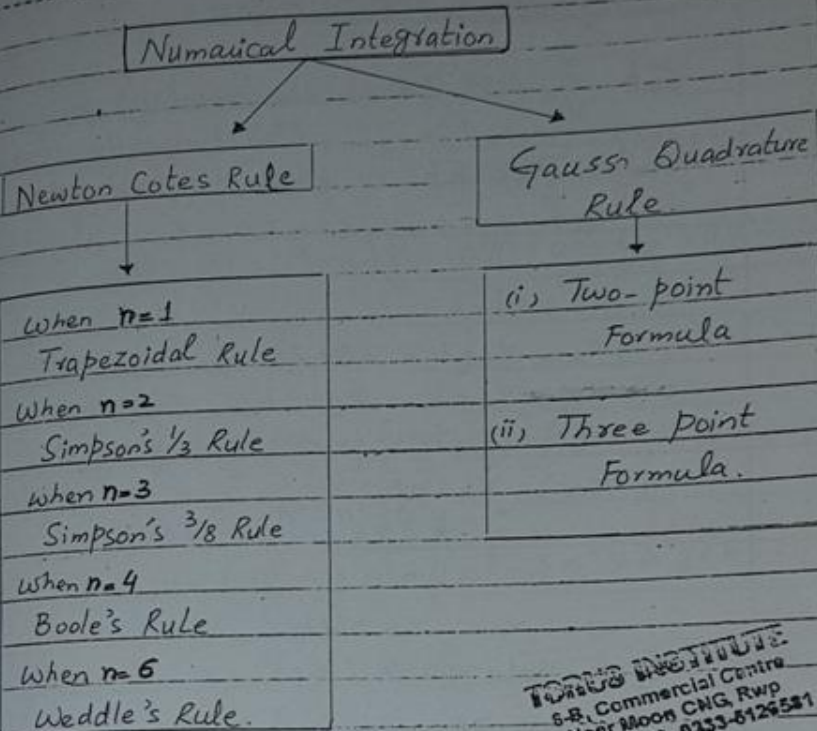 Numarical Integration
Newton Cotes Rule
Gauss Quadrature
Rule
when n=1
Trapezoidal Rule
when n=2
Simpson's 1/3 Rule
when n=3
Simpson's 3/8 Rule
when n=4
Boole's Rule
when n=6
Weddle's Rule.
(i) Two-point
Formula
(ii) Three point
Formula.
TORUS INSTITUTE
6-B, Commercial Centre
Near Moon CNG, Rwp
0333-5129531